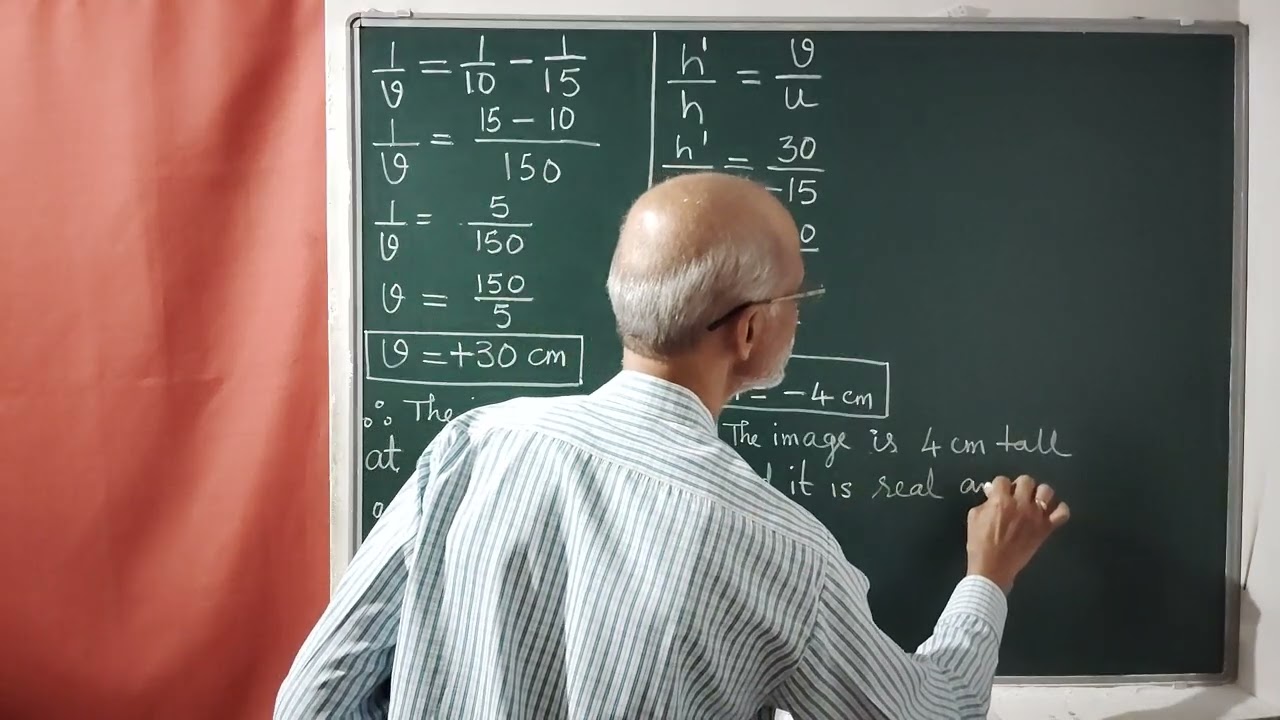 1/v = 1/10 − 1/15
1/v = 15 − 10/150
1/v = 5/150
v = 150/5
v = +30 cm
∴ The
at
h'/h = v/u
h' = 30/−15
= −4 cm
The image is 4 cm tall
it is real